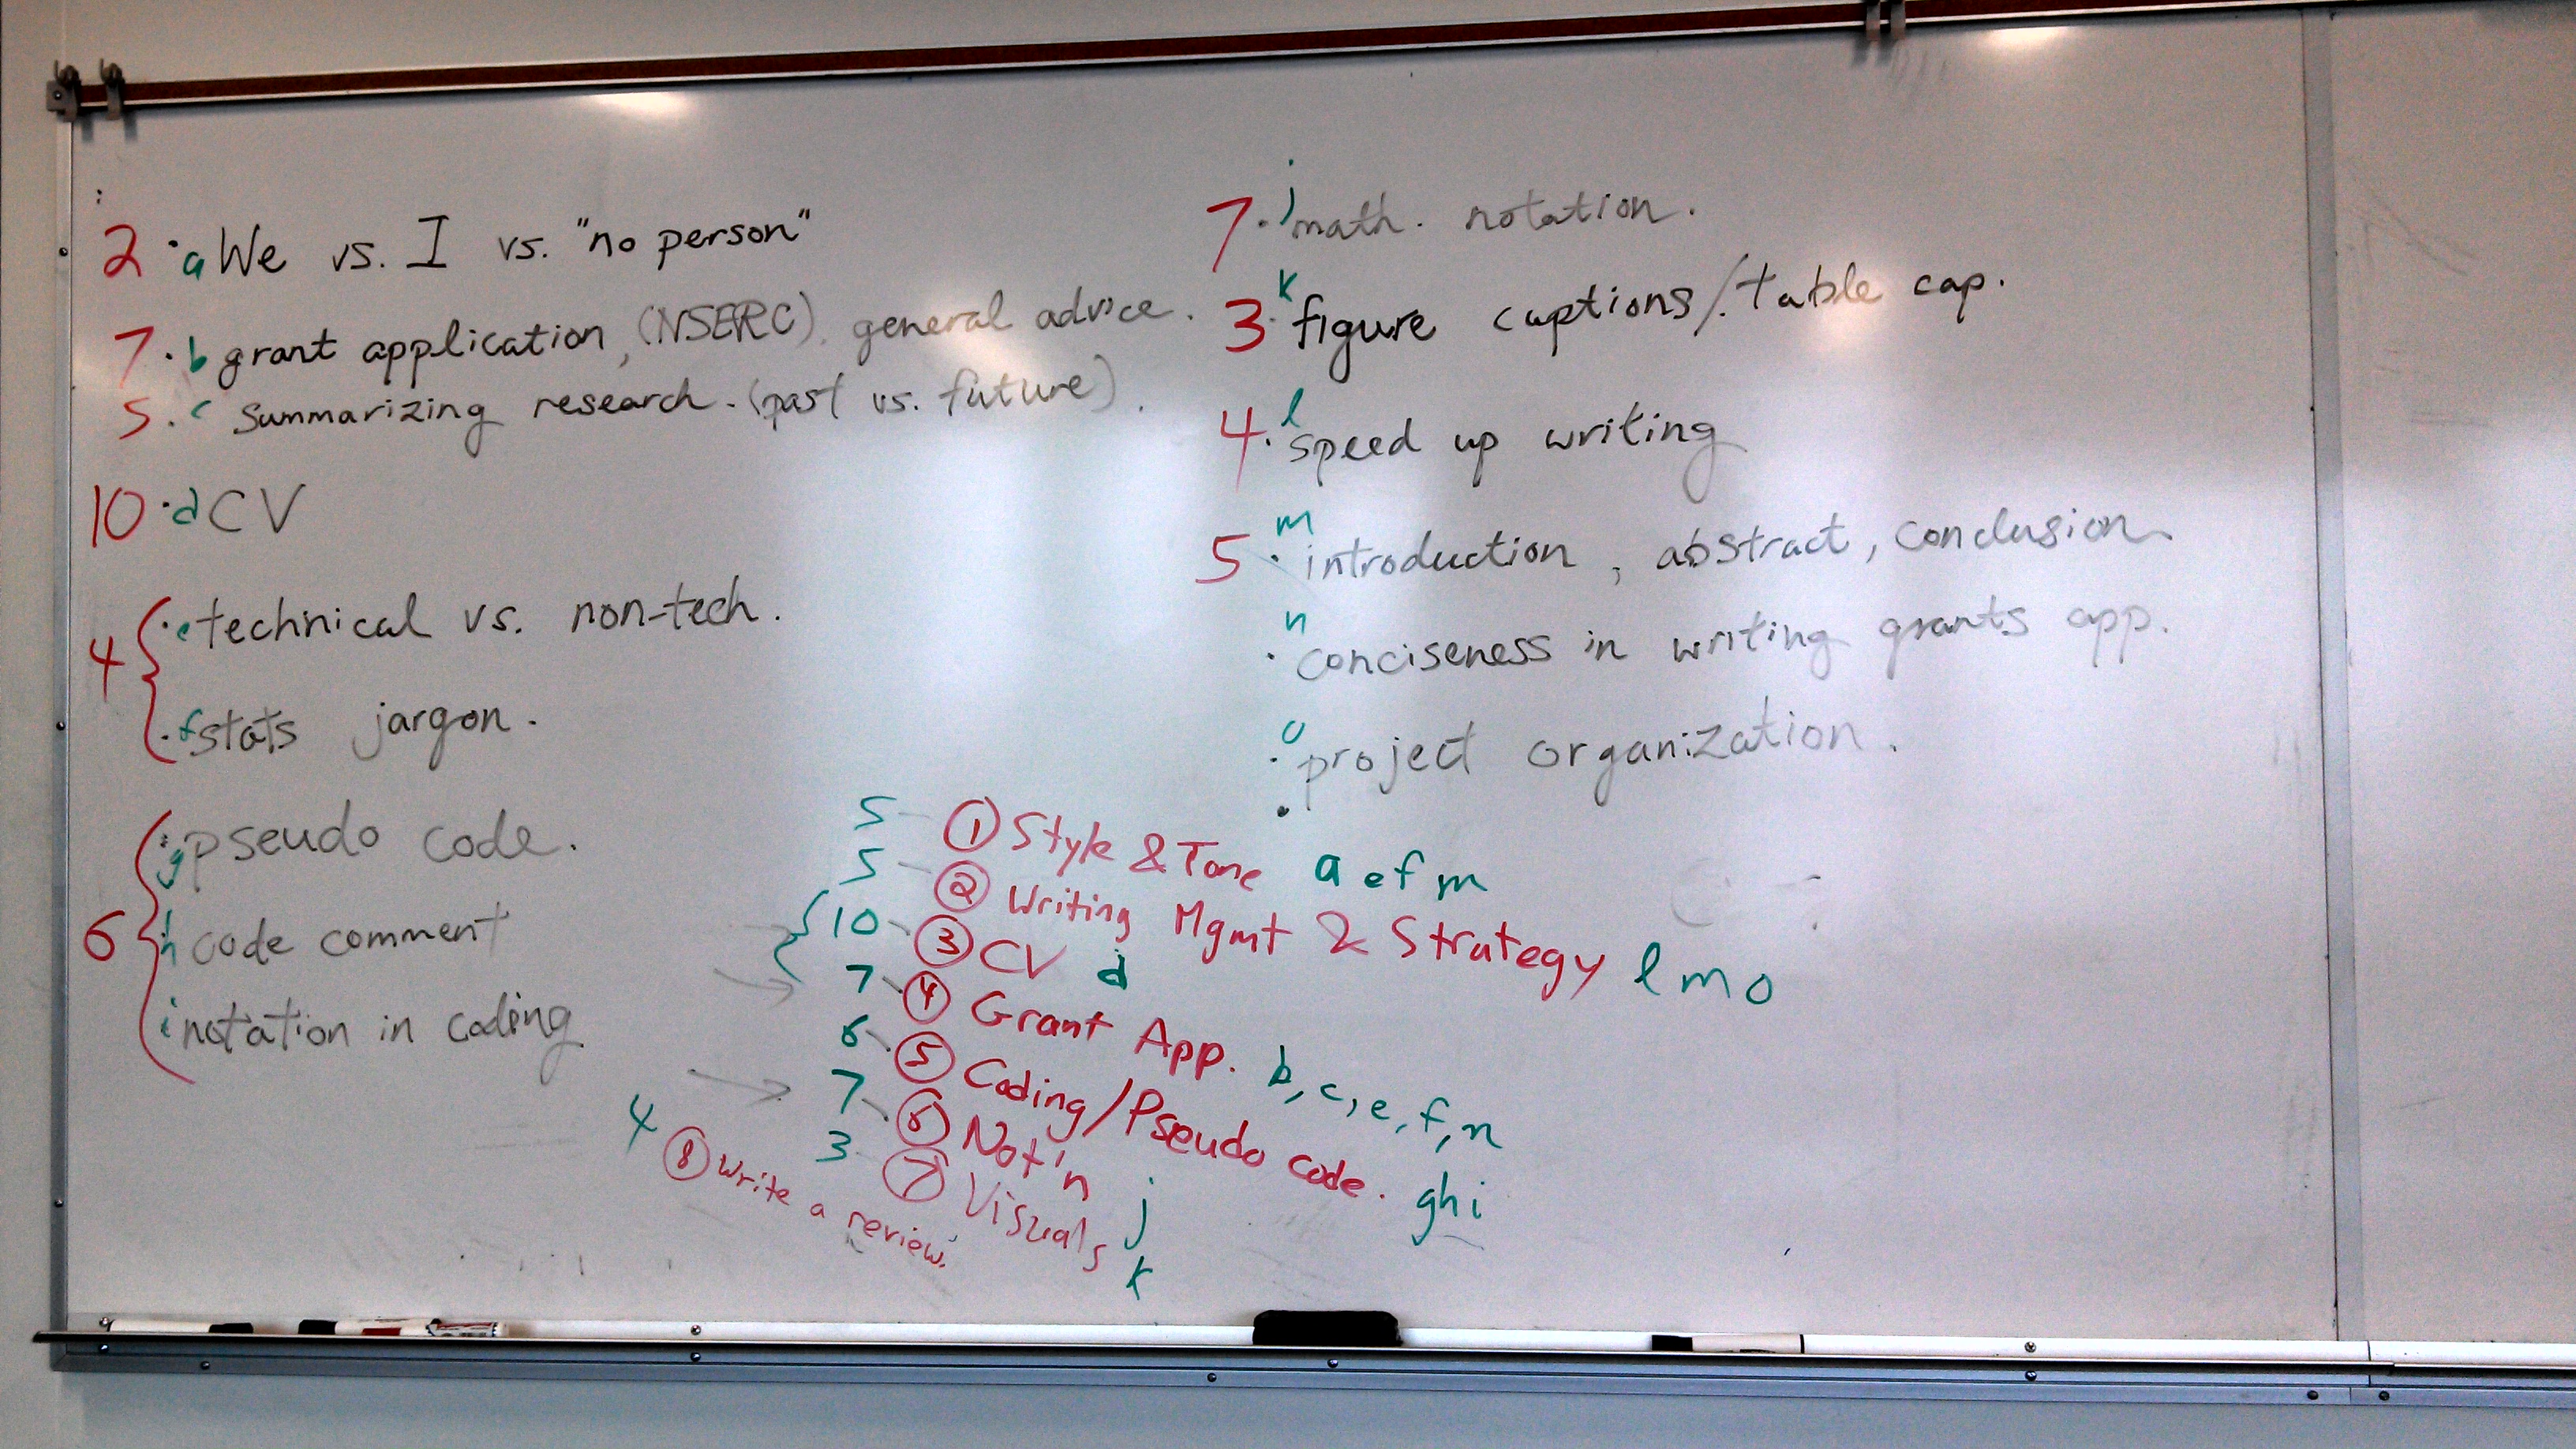 2 · a We vs. I vs. "no person"
7 · b grant application, (NSERC), general advice.
5 · c Summarizing research. (past vs. future).
10 · d CV
4 { · e technical vs. non-tech.
· f stats jargon.
6 { · g pseudo code.
h code comment
i notation in coding
7 · j math. notation.
3 · k figure captions/table cap.
4 · l speed up writing
5 · m introduction, abstract, conclusion
· n conciseness in writing grants app.
· o project organization.
5 - ① Style & Tone a e f m
5 - ② Writing Mgmt & Strategy l m o
10 - ③ CV d
7 - ④ Grant App. b, c, e, f, n
6 - ⑤ Coding/Pseudo code. g h i
7 - ⑥ Not'n j
3 - ⑦ Visuals k
4 ⑧ Write a review.